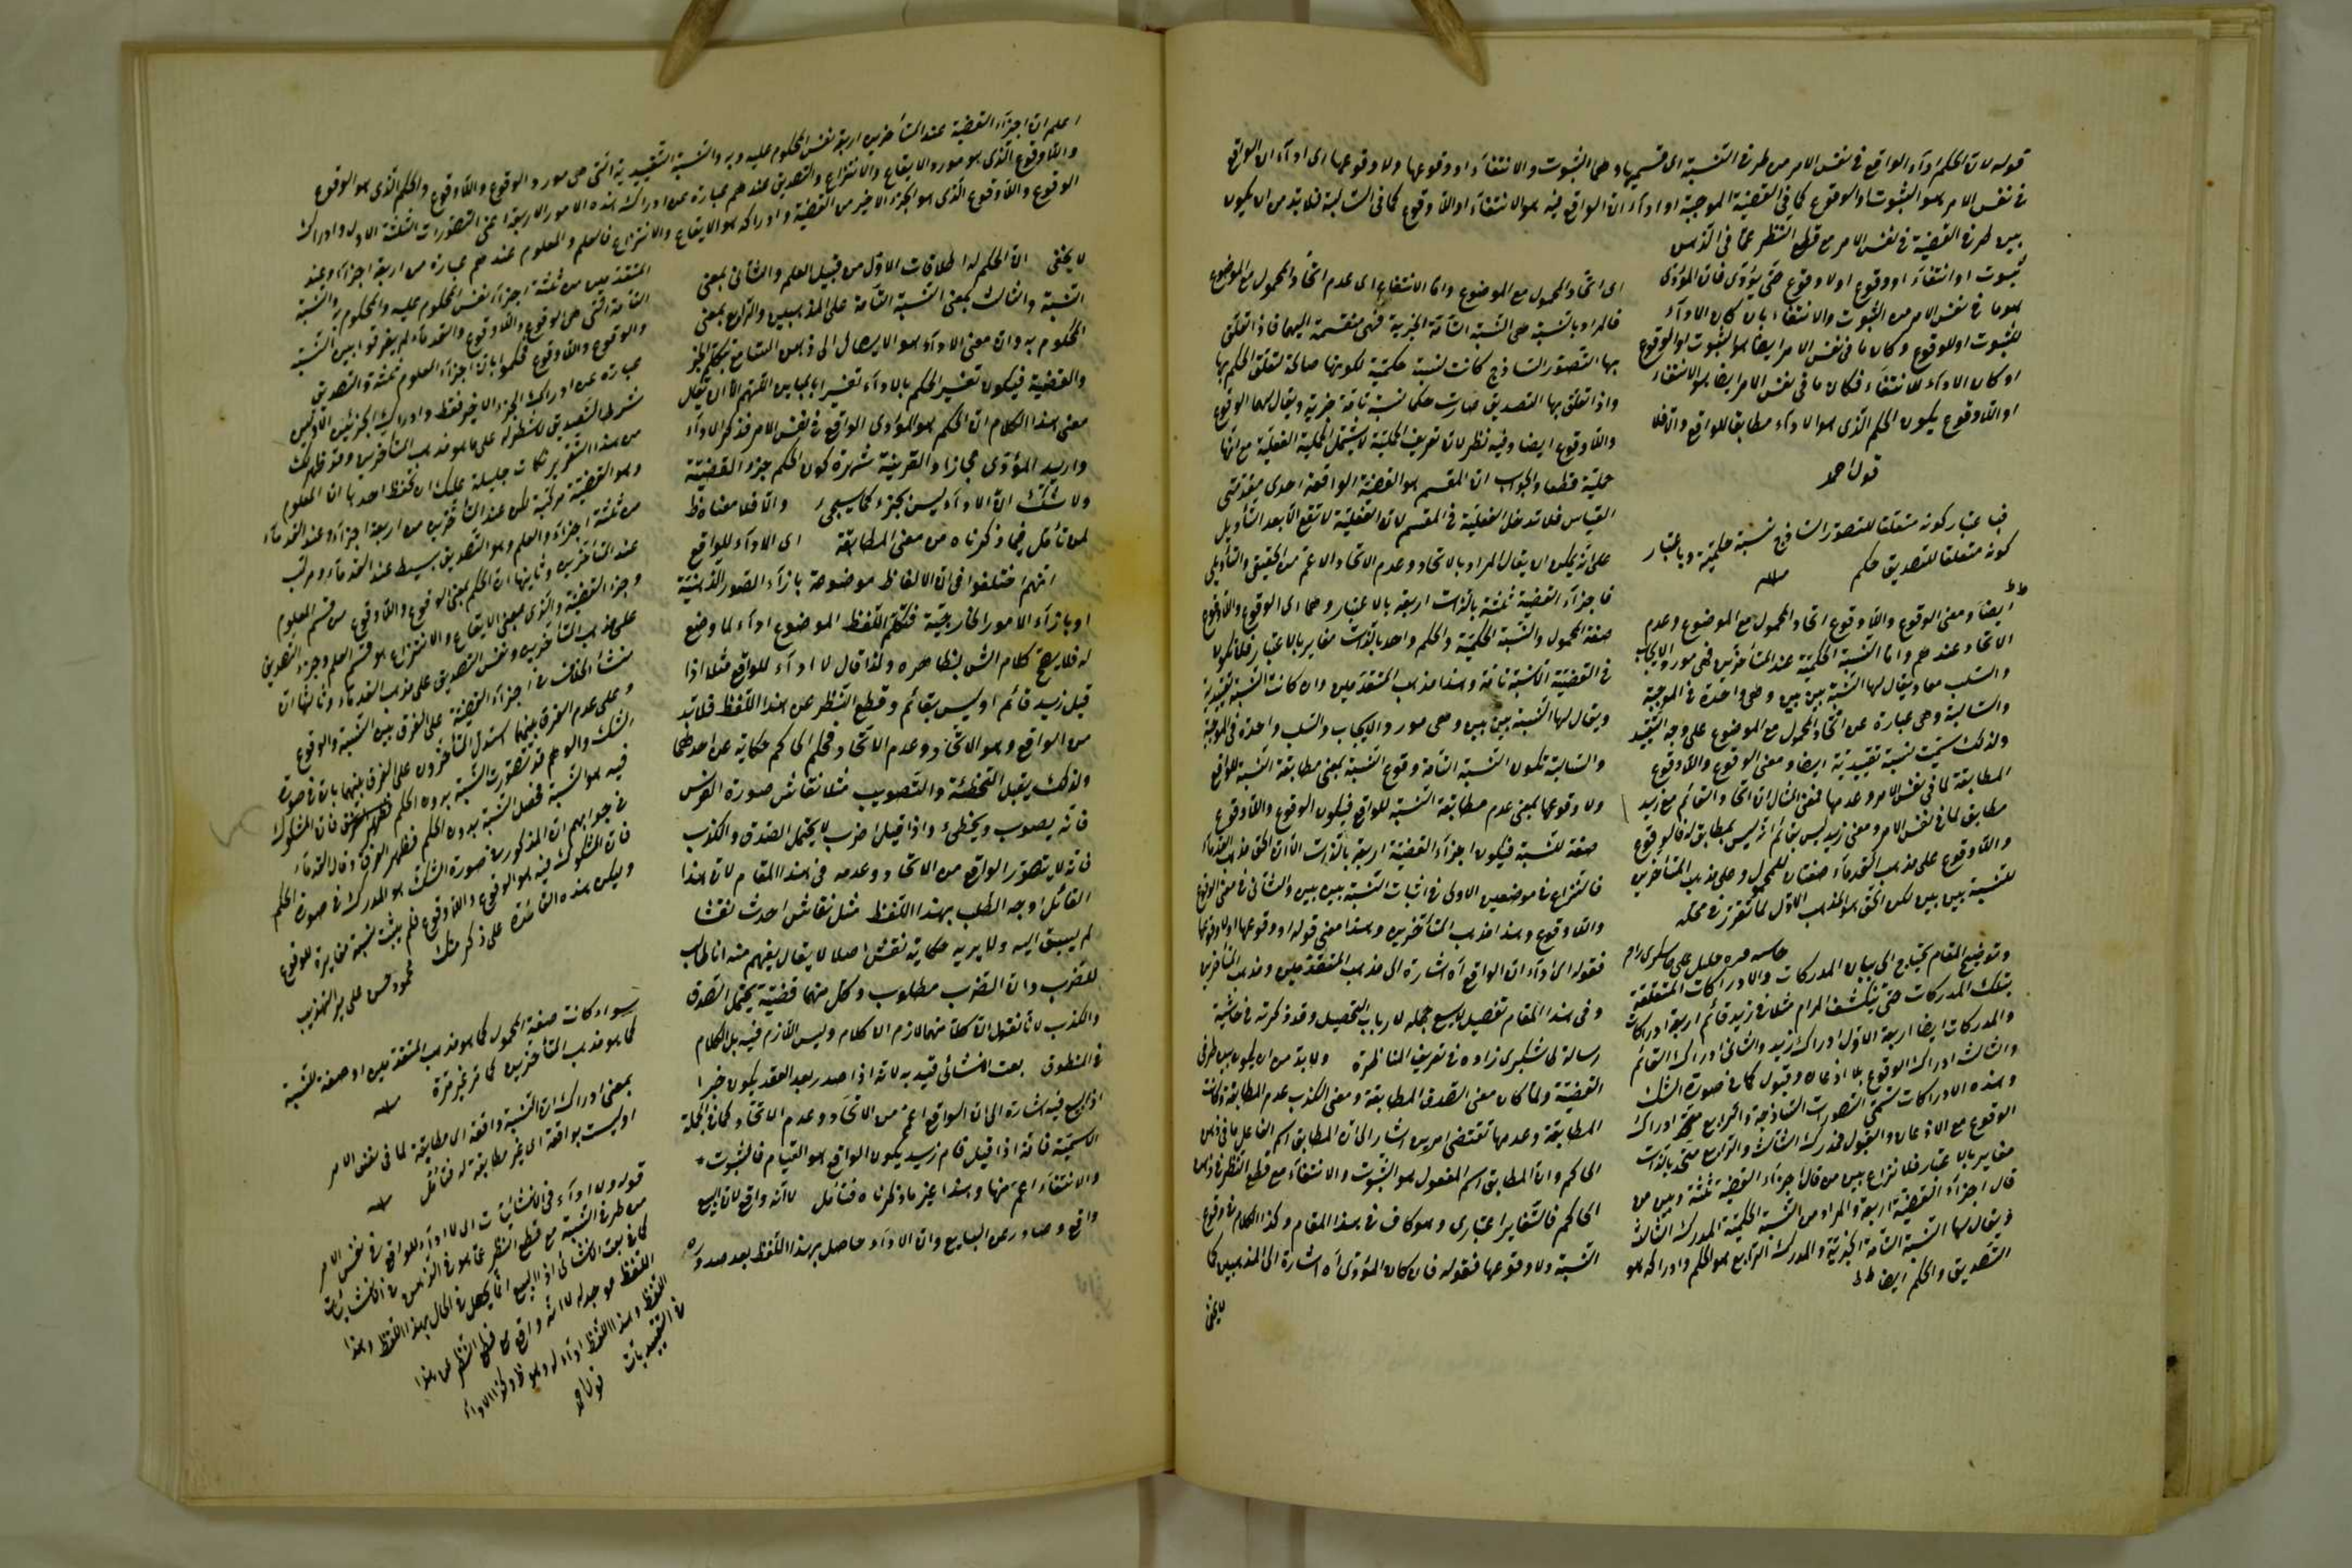 قوله لان الحكم اداء الواقع في نفس الامر من طرفي النسبة اى قسميها وهما الثبوت والانتفاء او وقوعها ولا وقوعها اى اداء ان الواقع
في نفس الامر هو الثبوت او الوقوع كما في القضية الموجبة او اداء ان الواقع فيه هو الانتفاء او اللاوقوع كما في السالبة فلا بد من ان يكون
بين طرفي القضية في نفس الامر مع قطع النظر عما في الذهن
ثبوت او انتفاء او وقوع او لا وقوع حتى يؤدى فان المؤدى
هو ما في نفس الامر من الثبوت والانتفاء بان كان الاداء
للثبوت او للوقوع وكان ما في نفس الامر ايضا هو الثبوت او الوقوع
او كان الاداء للانتفاء فكان ما في نفس الامر ايضا هو الانتفاء
او اللاوقوع يكون الحكم الذى هو الاداء مطابقا للواقع والا فلا
قول احمد
فباعتبار كونه متعلقا للتصور الساذج نسبة حكمية وباعتبار
كونه متعلقا للتصديق حكم
ايضا ومعنى الوقوع واللاوقوع اتحاد المحمول مع الموضوع وعدم
الاتحاد عندهم واما النسبة الحكمية عند المتأخرين فهى مورد الايجاب
والسلب معا ويقال لها النسبة بين بين وهى واحدة في الموجبة
والسالبة وهى عبارة عن اتحاد المحمول مع الموضوع على وجه التقييد
ولذلك سميت نسبة تقييدية ايضا ومعنى الوقوع واللاوقوع
المطابقة لما في نفس الامر وعدمها فمعنى المثال ان اتحاد القائم مع زيد
مطابق لما في نفس الامر ومعنى زيد ليس بقائم انه ليس بمطابق له فالوقوع
واللاوقوع على مذهب القدماء صفتان للمحمول وعلى مذهب المتأخرين
للنسبة بين بين لكن الحق هو المذهب الاول لما تقرر في محله
وتوضيح المقام يحتاج الى بيان المدركات والادراكات المتعلقة
بتلك المدركات حتى ينكشف المرام مثلا في زيد قائم اربعة ادراكات
والمدركات ايضا اربعة الاول ادراك زيد والثانى ادراك القائم
والثالث ادراك الوقوع بلا اذعان وقبول كما في صورة الشك
وهذه الادراكات تسمى التصورات الساذجة والرابع ادراك
الوقوع مع الاذعان والقبول فمدرك الثالث والرابع متحد بالذات
مغاير بالاعتبار فلا نزاع بين من قال اجزاء القضية ثلثة وبين من
قال اجزاء القضية اربعة والمراد من النسبة الحكمية المدرك الثالث
ويقال لها النسبة التامة الخبرية والمدرك الرابع هو الحكم وادراكه هو
التصديق والحكم ايضا
اى اتحاد المحمول مع الموضوع واما الانتفاء اى عدم اتحاد المحمول مع الموضوع
فالمراد بالنسبة هى النسبة التامة الخبرية فهى منقسمة اليهما فاذا تعلق
بها التصور الساذج كانت نسبة حكمية لكونها صالحة لتعلق الحكم بها
واذا تعلق بها التصديق صارت حكما نسبة تامة خبرية ويقال لهما الوقوع
واللاوقوع ايضا وفيه نظر لان تعريف الحملية لا يشتمل الحملية الفعلية مع انها
حملية قطعا والجواب ان المقسم هو القضية الواقعة احدى مقدمتى
القياس فلا تدخل الفعلية في المقسم لان الفعلية لا تقع الا بعد التأويل
على انه يمكن ان يقال المراد بالاتحاد وعدم الاتحاد الاعم من الحقيقى والتأويلى
فاجزاء القضية ثلثة بالذات اربعة بالاعتبار وهما اى الوقوع واللاوقوع
صفة المحمول والنسبة الحكمية والحكم واحد بالذات مغاير بالاعتبار فلا تكون
في القضية الا نسبة تامة وهذا مذهب المتقدمين وان كانت النسبة تقييدية
ويقال لها النسبة بين بين وهى مورد الايجاب والسلب واحدة في الموجبة
والسالبة تكون النسبة التامة وقوع النسبة بمعنى مطابقة النسبة للواقع
ولا وقوعها بمعنى عدم مطابقة النسبة للواقع فيكون الوقوع واللاوقوع
صفة للنسبة فيكون اجزاء القضية اربعة بالذات الا ان الحق مذهب القدماء
فالنزاع في موضعين الاول في اثبات النسبة بين بين والثانى في معنى الوقوع
واللاوقوع وهذا مذهب المتأخرين وهذا معنى قوله او وقوعها او لا وقوعها
فقوله اى اداء ان الواقع آه اشارة الى مذهب المتقدمين ومذهب المتأخرين
وفى هذا المقام تفصيل يسع جمله لارباب التحصيل وقد ذكرته في حاشية
رسالة طاشكبرى زاده في تعريف المناظرة ولا بد من ان يكون بين طرفى
القضية ولما كان معنى الصدق المطابقة ومعنى الكذب عدم المطابقة وكانت
المطابقة وعدمها تقتضى امرين اشار الى ان المطابق اسم الفاعل ما في ذهن
الحاكم وان المطابق اسم المفعول هو الثبوت والانتفاء مع قطع النظر عن ذهن
الحاكم فالتغاير اعتبارى وهو كاف في هذا المقام وكذا الكلام في وقوع
النسبة ولا وقوعها فقوله فان كان المؤدى آه اشارة الى المذهبين كما
لا يخفى
اعلم ان اجزاء القضية عند المتأخرين اربعة نفس المحكوم عليه وبه والنسبة التقييدية التى هى مورد الوقوع واللاوقوع والحكم الذى هو الوقوع
واللاوقوع الذى هو مورد الايقاع والانتزاع والتصديق عندهم عبارة عن ادراك هذه الامور الاربعة اعنى التصورات الثلثة الاول وادراك
الوقوع واللاوقوع الذى هو الجزء الاخير من القضية وادراكه هو الايقاع والانتزاع فالعلم والمعلوم عندهم عبارة من اربعة اجزاء وعند
المتقدمين من ثلثة اجزاء نفس المحكوم عليه والمحكوم به والنسبة
التامة التى هى الوقوع واللاوقوع والقدماء لم يفرقوا بين النسبة
والوقوع واللاوقوع فحكموا بان اجزاء المعلوم ثلثة والتصديق
عبارة عن ادراك الجزء الاخير فقط وادراك الجزئين الاولين
شرط التصديق لا شطره على ما هو مذهب المتأخرين وقد ظهر لك
من هذا التقرير نكات جليلة عليك ان تحفظ احدها ان المعلوم
وهو القضية مركبة لكن عند المتأخرين من اربعة اجزاء وعند القدماء
من ثلثة اجزاء والعلم وهو التصديق بسيط عند القدماء ومركب
عند المتأخرين وثانيها ان الحكم بمعنى الوقوع واللاوقوع من قسم المعلوم
وجزء القضية والذى بمعنى الايقاع والانتزاع هو قسم العلم وجزء التصديق
على مذهب المتأخرين ونفس التصديق على مذهب القدماء وثالثها ان
منشأ الخلاف في اجزاء القضية على الفرق بين النسبة والوقوع
وعلى عدم الفرق بينهما استدل المتأخرون على الفرق بينهما بان في صورة
الشك والوهم قد تصورت النسبة بدون الحكم فان المشكوك
فيه هو النسبة فحصل النسبة بدون الحكم فظهر الفرق وقال القدماء
في جوابهم ان المذكور في صورة الشك هو المدرك في صورة الحكم
فان المشكوك فيه هو الوقوع واللاوقوع فلم يثبت نسبة مغايرة للوقوع
وليكن هذه القاعدة على ذكر منك محمود حسن على مير التهذيب
سواء كانت صفة المحمول كما هو مذهب المتقدمين او صفة للنسبة
كما هو مذهب المتأخرين كما مر غير مرة
بمعنى ادراك ان النسبة واقعة اى مطابقة لما في نفس الامر
او ليست بواقعة اى غير مطابقة له فتأمل
قوله ولا اداء في الانشائيات اى لا اداء للواقع في نفس الامر
من طرفى النسبة مع قطع النظر عما هو في الذهن في الانشائيات
كما في بعت الانشائى اذ البيع انما يحصل في الحال بهذا اللفظ وهذا
اللفظ موجد له لا انه واقع مع قطع النظر عن هذا
اللفظ وهذا اللفظ اداء له وهو ظ وكذا الاداء
في التقييديات قول احمد
لا يخفى ان الحكم له اطلاقات الاول من قبيل العلم والثانى بمعنى
النسبة والثالث بمعنى النسبة التامة على المذهبين والرابع بمعنى
المحكوم به وان معنى الاداء هو الايصال الى ذهن السامع بتكلم الخبر
والقضية فيكون تفسير الحكم بالاداء تفسيرا بالمباين اللهم الا ان يقال
معنى هذا الكلام ان الحكم هو المؤدى الواقع في نفس الامر فذكر الاداء
واريد المؤدى مجازا والقرينة شهرة كون الحكم جزء القضية
ولا شك ان الاداء ليس بجزء كما سيجئ والا فلا معناه ظ
لمن تأمل فيما ذكرناه من معنى المطابقة اى الاداء للواقع
انهم اختلفوا في ان الالفاظ موضوعة بازاء الصور الذهنية
او بازاء الامور الخارجية فتكلم اللفظ الموضوع اداء لما وضع
له فلا يصح كلام الش بظاهره ولذا قال لا اداء للواقع مثلا اذا
قيل زيد قائم او ليس بقائم وقطع النظر عن هذا اللفظ فلا بد
من الواقع وهو الاتحاد وعدم الاتحاد فحكم الحاكم حكاية عن احدهما
ولذلك يقبل التخطئة والتصويب مثل نقاش صورة الفرس
فانه يصوب ويخطئ واذا قيل اضرب لا يحتمل الصدق والكذب
فانه لا يتصور الواقع من الاتحاد وعدمه في هذا المقام لان هذا
القائل اوجد الطلب بهذا اللفظ مثل نقاش احدث نقشا
لم يسبق اليه ولا يريد حكاية نقش اصلا لا يقال يفهم منه انا طالب
للضرب وان الضرب مطلوب وكل منهما قضية يحتمل الصدق
والكذب لانا نقول ان كلا منهما لازم الكلام وليس اللازم فيه بل الكلام
في المنطوق بعت الانشائى قيد به لانه اذا صدر بعد العقد يكون خبرا
اذ البيع فيه اشارة الى ان الواقع اعم من الاتحاد وعدم الاتحاد كما في الجملة
الاسمية فانه اذا قيل قام زيد يكون الواقع هو القيام فالثبوت
والانتفاء اعم منها وهذا غير ما ذكرناه فتأمل لا انه واقع لان البيع
واقع وصادر عن البايع وان الاداء حاصل بهذا اللفظ بعد صدوره